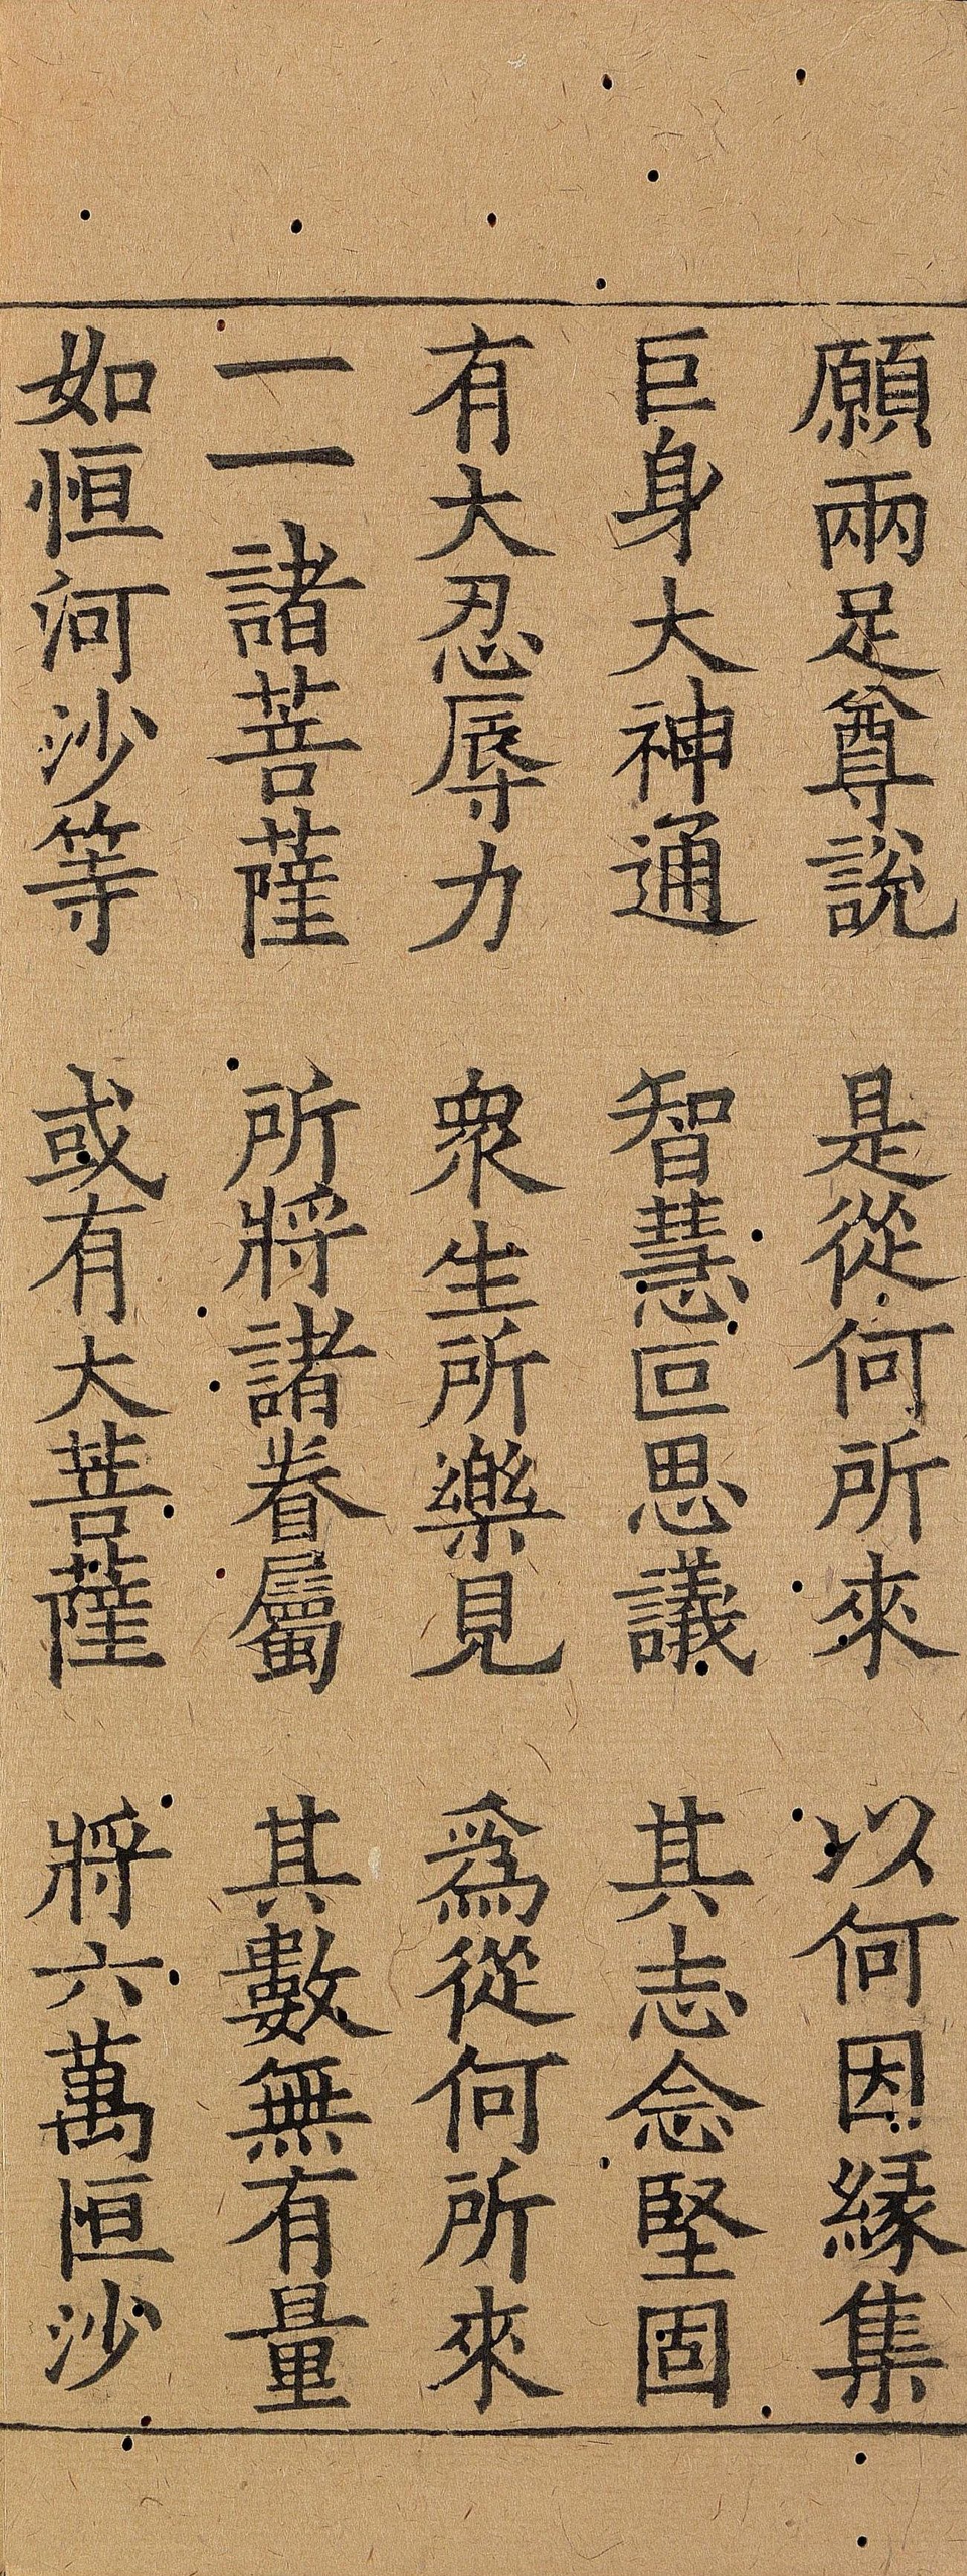 願兩足尊説 是從何所來 以何因縁集
巨身大神通 智慧叵思議 其志念堅固
有大忍辱力 衆生所樂見 爲從何所來
一一諸菩薩 所將諸眷屬 其數無有量
如恒河沙等 或有大菩薩 將六萬恒沙